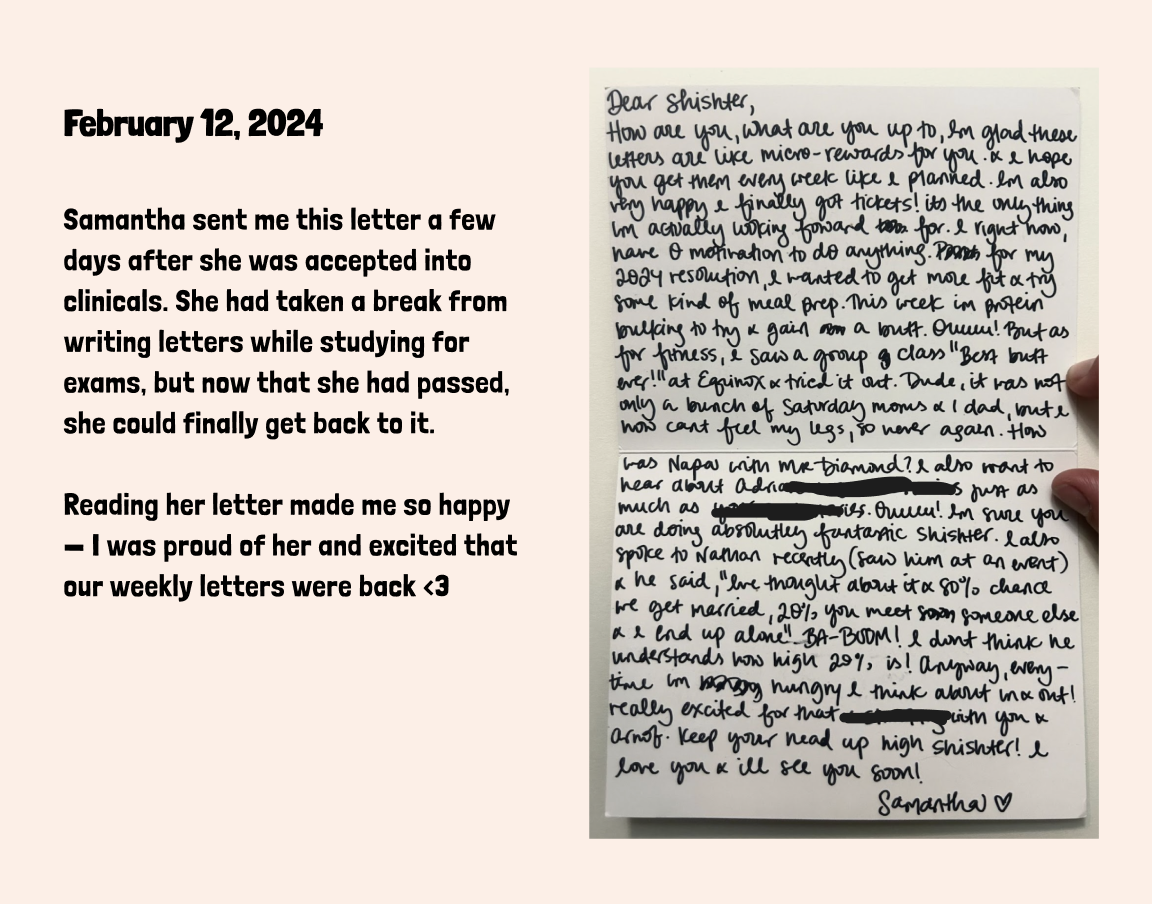 February 12, 2024
Samantha sent me this letter a few
days after she was accepted into
clinicals. She had taken a break from
writing letters while studying for
exams, but now that she had passed,
she could finally get back to it.
Reading her letter made me so happy
— I was proud of her and excited that
our weekly letters were back <3
Dear Shishter,
How are you, what are you up to, Im glad these
letters are like micro-rewards for you. & I hope
you get them every week like I planned. Im also
very happy I finally got tickets! its the only thing
im actually looking foward for. I right now,
have 0 motivation to do anything. for my
2024 resolution, I wanted to get more fit & try
some kind of meal prep. This week im protein
bulking to try & gain a butt. Ouuuu! But as
for fitness, I saw a group class "Best butt
ever!" at Equinox & tried it out. Dude, it was not
only a bunch of Saturday moms & 1 dad, but I
now cant feel my legs, so never again. How
was Napa with Mr Diamond? I also want to
hear about just as
much as Ouuuu! Im sure you
are doing absolutley fantastic shishter. I also
spoke to Nathan recently (saw him at an event)
& he said, "Ive thought about it & 80% chance
we get married, 20% you meet someone else
& I end up alone"! BA-BOOM! I dont think he
understands how high 20% is! Anyway, every-
time im hungry I think about in & out!
really excited for that with you &
arnof. Keep your head up high shishter! I
love you & ill see you soon!
Samantha ♡